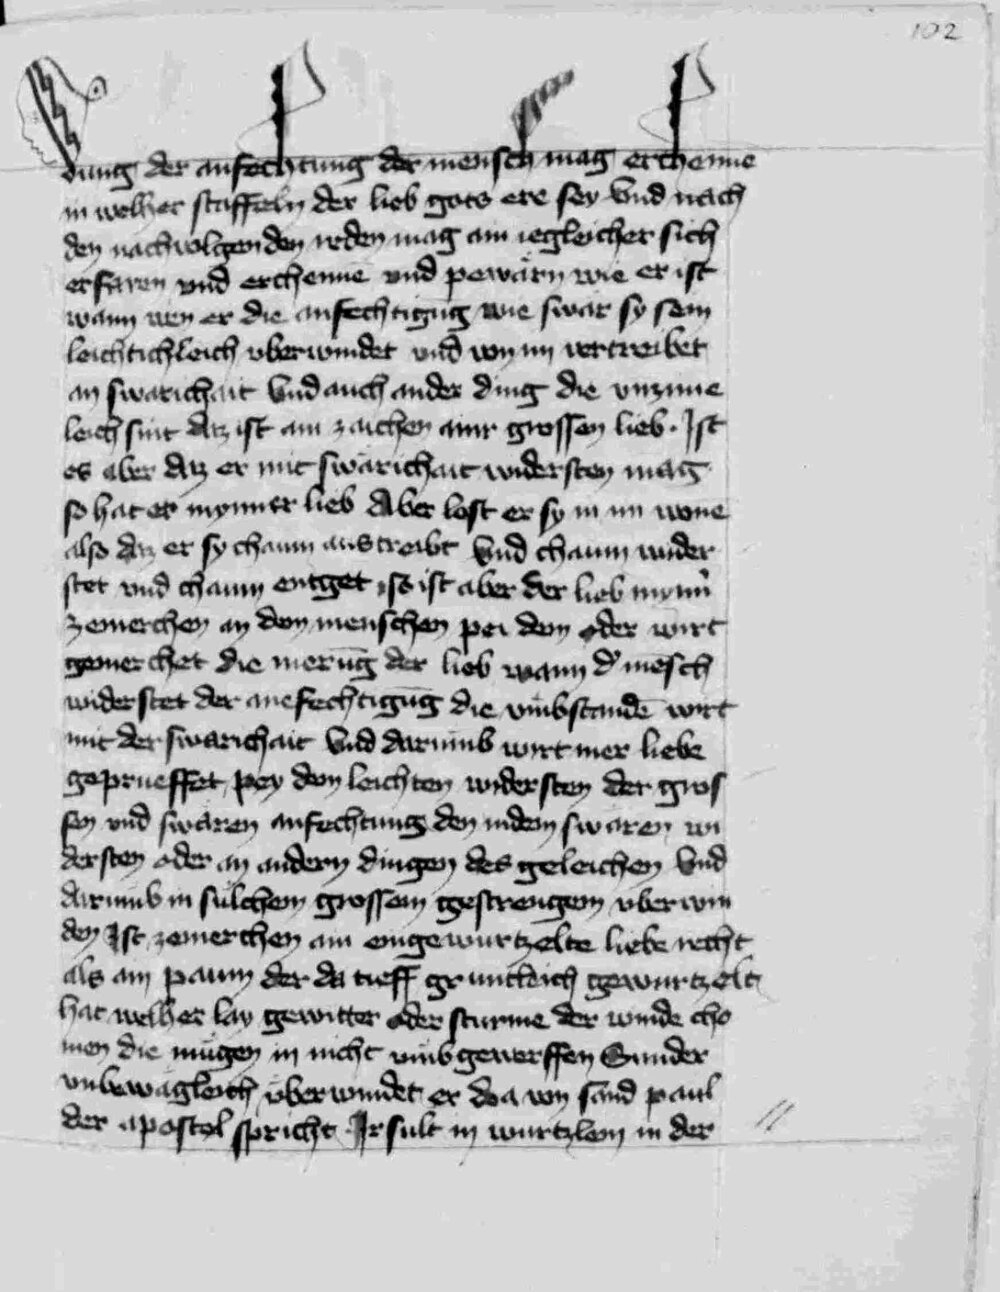 102
dung der anfechtung der mensch mag erchenne
in welher staffeln der lieb gots ere sey Vnd nach
den nachuolgenden reden mag ain iegleicher sich
erfaren vnd erchennē vnd pewärn wie er ist
wann wen er die anfechtigūg wie swar sy sein
leichtichleich vberwindet vnd von im vertreibet
an swarichait Vnd auch ander ding die vnzime
leich sint daz ist ain zaichen ainr grossen lieb. Ist
es aber daz er mit swärichait widersten mag
so hat er mynner lieb Aber lost er sy in im wone
also daz er sy chaum austreibt Vnd chaum wider
stet vnd chaum entget so ist aber der lieb mynn̄
zemerchen an dem menschen pei dem oder wirt
gemerchet die merūg der lieb wann d' mēsch
widerstet der anefechtigūg die vmbstandē wirt
mit der swarichait Vnd darumb wirt mer liebe
geprueffet pey dem leichten widersten der gros
sen vnd swären anfechtung den in dem swären wi
dersten oder an andern dingen des geleichen Vnd
darumb in sülchem grossem gestrengem vberwin
den Ist zemerchen ain eingewurtzelte liebe recht
als ain paum der da tieff gruntleich gewurtzelt
hat welher lay gewitter oder sturme der winde cho
men die mügen in nicht vmbgewerffen Sunder
vnbewägleich überwindet er da von sand paul
der apostol spricht Ir sult in wurtzlen in der